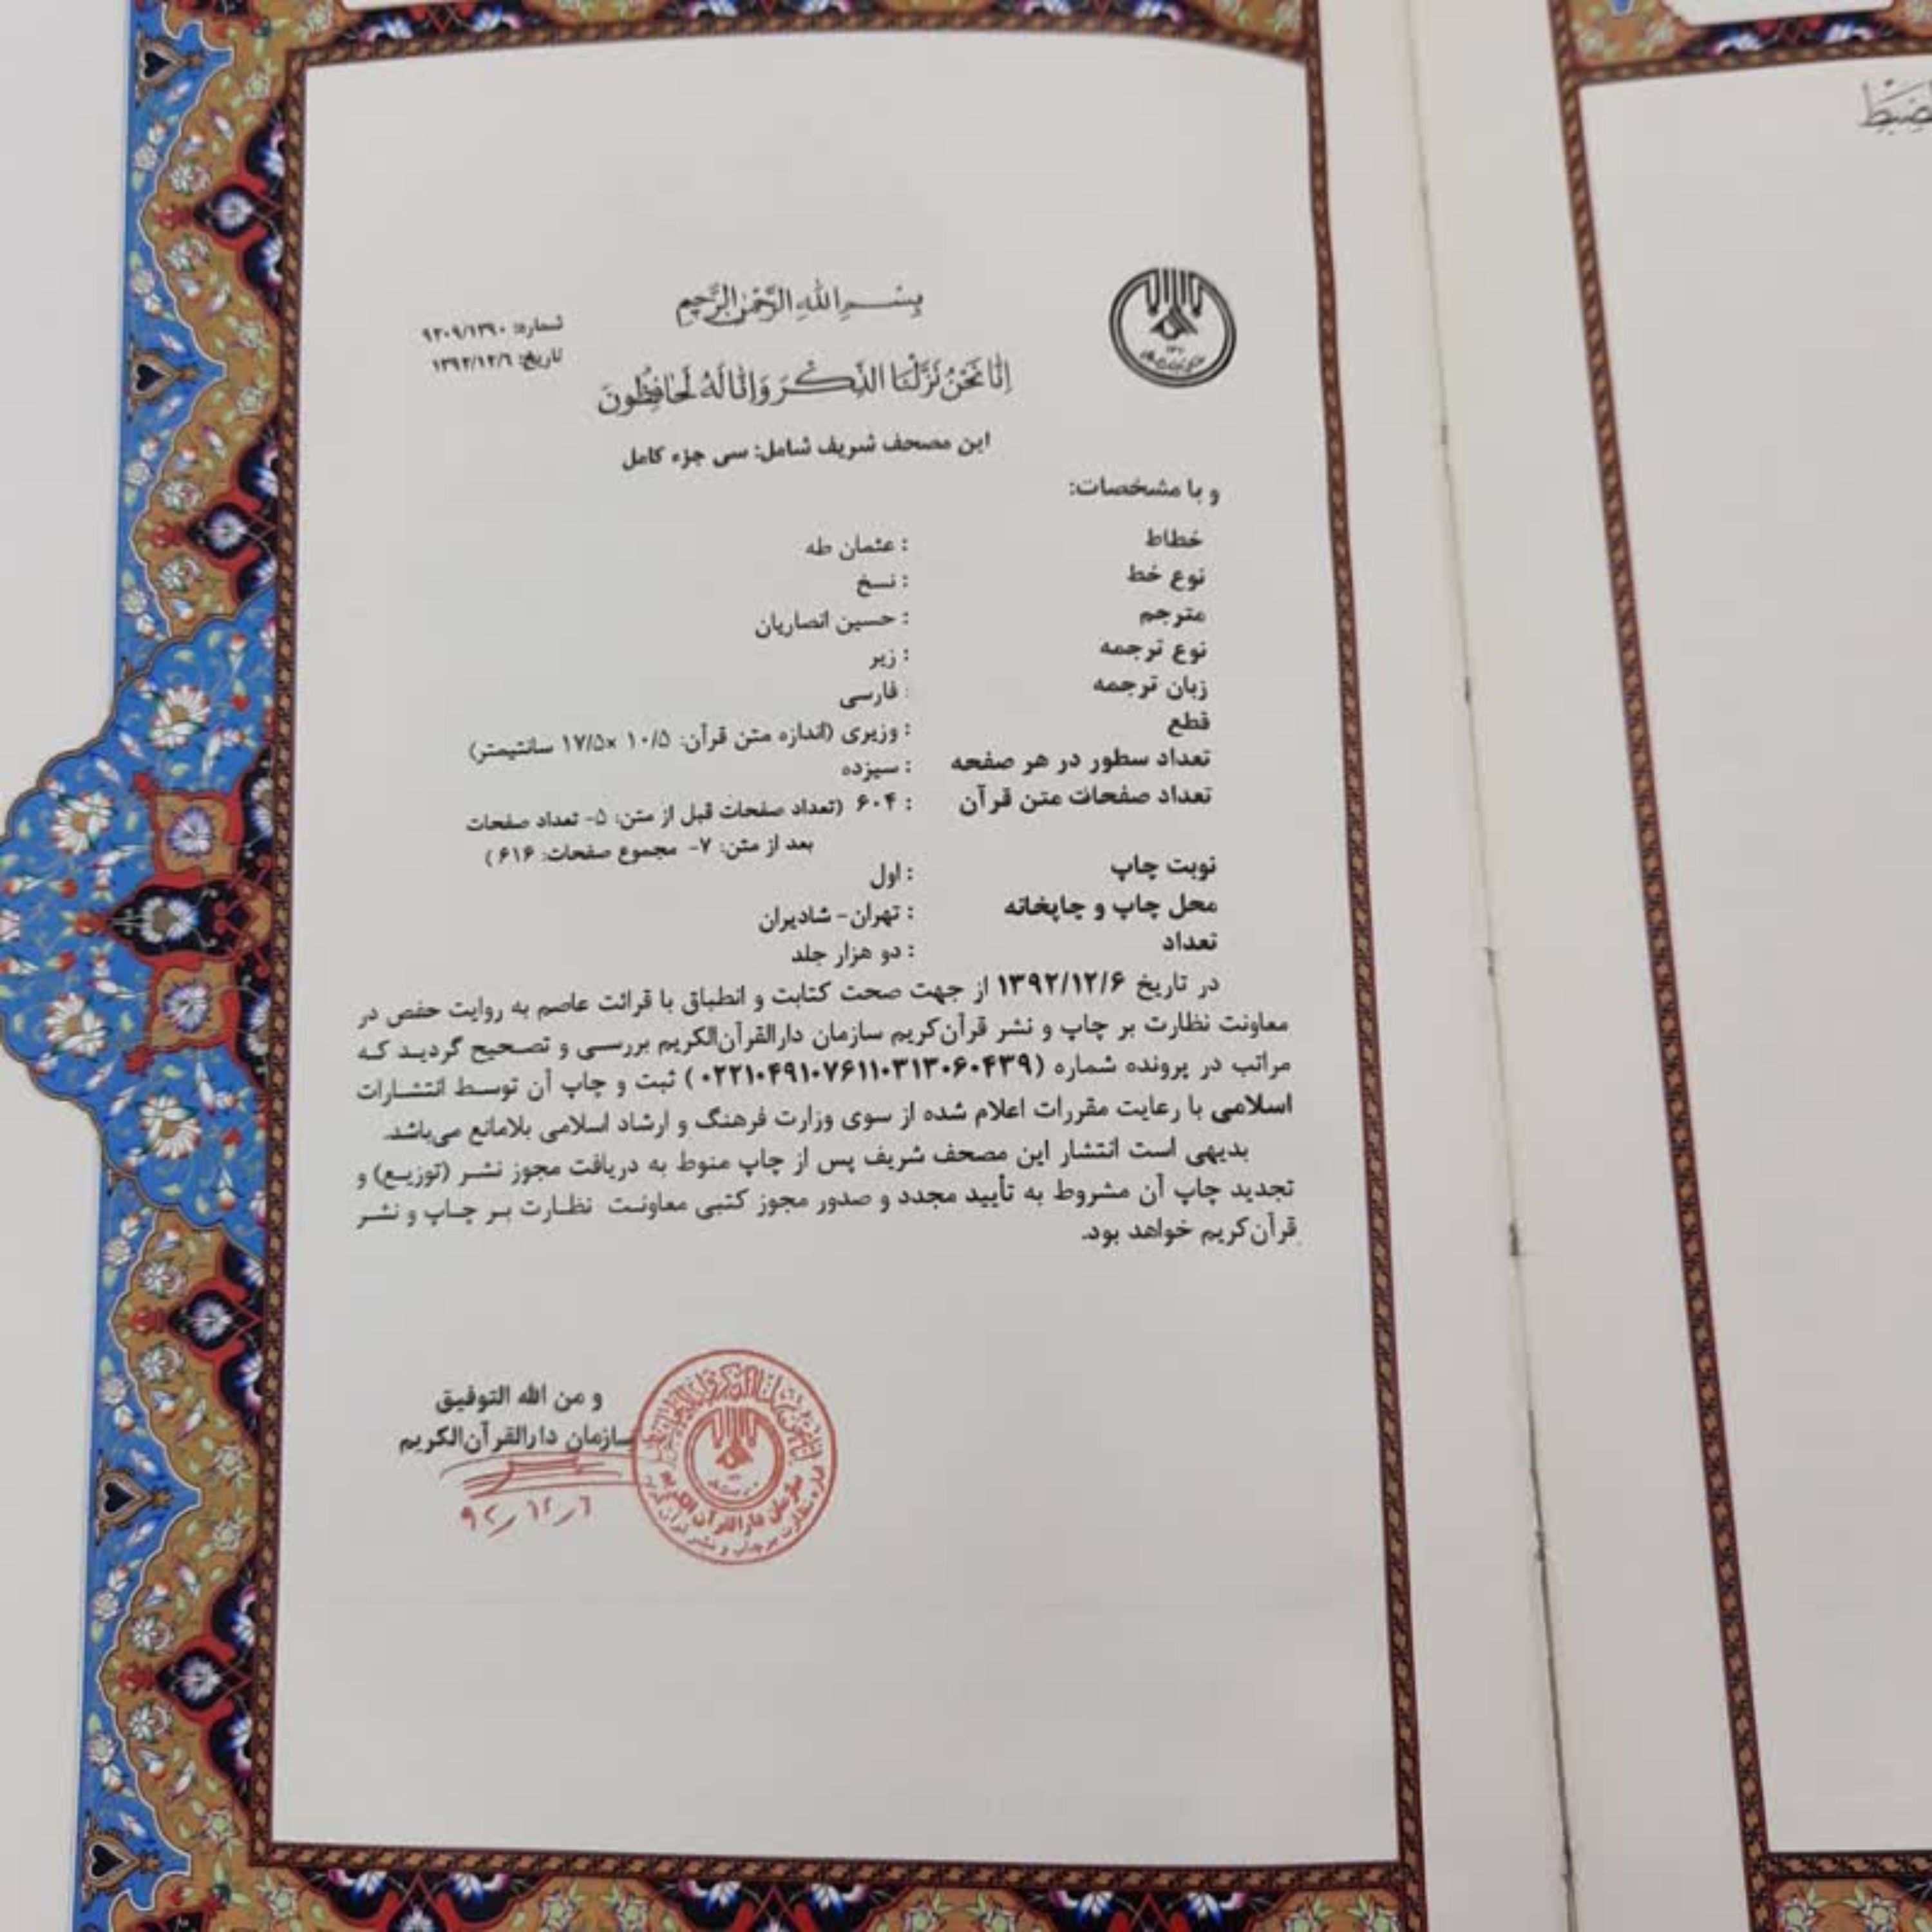 بِسْمِ اللهِ الرَّحْمٰنِ الرَّحِيمِ
شماره: ۹۲۰۹/۱۳۹۰
تاریخ: ۱۳۹۲/۱۲/۶
اِنّا نَحْنُ نَزَّلْنَا الذِّكْرَ وَاِنّا لَهُ لَحافِظُونَ
این مصحف شریف شامل: سی جزء کامل
و با مشخصات:
خطاط : عثمان طه
نوع خط : نسخ
مترجم : حسین انصاریان
نوع ترجمه : زیر
زبان ترجمه : فارسی
قطع : وزیری (اندازه متن قرآن: ۱۰/۵ ×۱۷/۵ سانتیمتر)
تعداد سطور در هر صفحه : سیزده
تعداد صفحات متن قرآن : ۶۰۴ (تعداد صفحات قبل از متن: ۵- تعداد صفحات
بعد از متن: ۷- مجموع صفحات: ۶۱۶ )
نوبت چاپ : اول
محل چاپ و چاپخانه : تهران- شادیران
تعداد : دو هزار جلد
در تاریخ ۱۳۹۲/۱۲/۶ از جهت صحت کتابت و انطباق با قرائت عاصم به روایت حفص در
معاونت نظارت بر چاپ و نشر قرآن‌کریم سازمان دارالقرآن‌الکریم بررسی و تصحیح گردید که
مراتب در پرونده شماره (۰۲۲۱۰۴۹۱۰۷۶۱۱۰۳۱۳۰۶۰۴۳۹) ثبت و چاپ آن توسط انتشارات
اسلامی با رعایت مقررات اعلام شده از سوی وزارت فرهنگ و ارشاد اسلامی بلامانع می‌باشد.
بدیهی است انتشار این مصحف شریف پس از چاپ منوط به دریافت مجوز نشر (توزیع) و
تجدید چاپ آن مشروط به تأیید مجدد و صدور مجوز کتبی معاونت نظارت بر چاپ و نشر
قرآن‌کریم خواهد بود.
و من الله التوفیق
سازمان دارالقرآن‌الکریم
۹۲/۱۲/۶
سازمان دارالقرآن الکریم